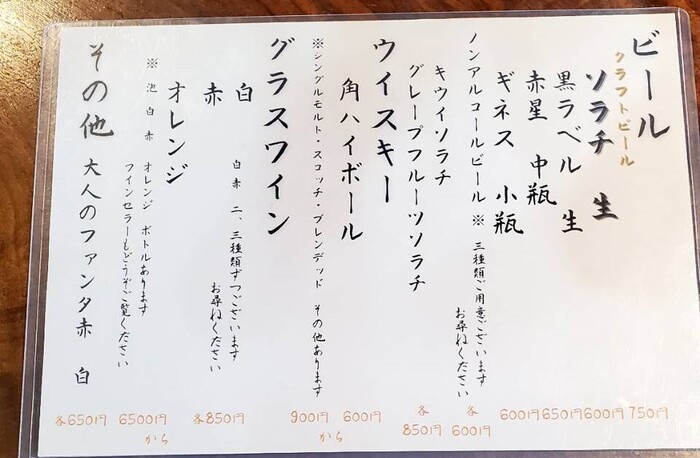 ビール
クラフトビール
ソラチ 生 750円
黒ラベル 生 600円
赤星 中瓶 650円
ギネス 小瓶 600円
ノンアルコールビール ※ 三種類ご用意ございます
お尋ねください 各600円
キウイソラチ
グレープフルーツソラチ 各850円
ウイスキー
角ハイボール 600円
※シングルモルト・スコッチ・ブレンデッド その他あります 900円から
グラスワイン
白 白赤 二、三種類ずつございます
赤 お尋ねください 各850円
オレンジ
※ 泡 白 赤 オレンジ ボトルあります
ワインセラーもどうぞご覧ください 6500円から
その他 大人のファンタ赤 白 各650円